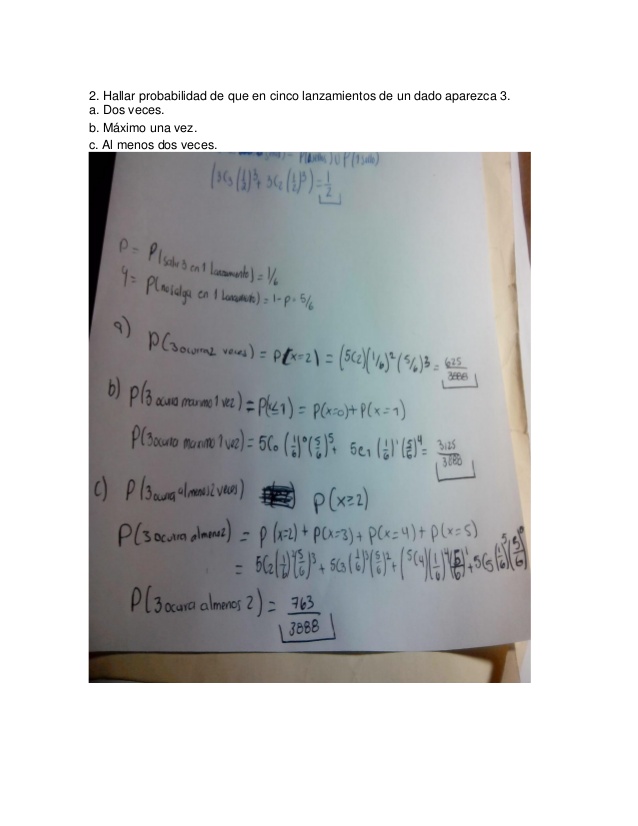 2. Hallar probabilidad de que en cinco lanzamientos de un dado aparezca 3.
a. Dos veces.
b. Máximo una vez.
c. Al menos dos veces.
(3C3 (1/2)^3 + 3C2 (1/2)^3) = 1/2
p = P(salir 3 en 1 lanzamiento) = 1/6
q = P(no salga en 1 lanzamiento) = 1 - p = 5/6
a) P(3 ocurra 2 veces) = P(x=2) = (5C2)(1/6)^2 (5/6)^3 = 625/3888
b) P(3 ocurra maximo 1 vez) = P(x≤1) = P(x=0) + P(x=1)
P(3 ocurra maximo 1 vez) = 5C0 (1/6)^0 (5/6)^5 + 5C1 (1/6)^1 (5/6)^4 = 3125/3888
c) P(3 ocurra al menos 2 veces) P(x≥2)
P(3 ocurra al menos 2) = P(x=2) + P(x=3) + P(x=4) + P(x=5)
= 5C2 (1/6)^2 (5/6)^3 + 5C3 (1/6)^3 (5/6)^2 + (5C4)(1/6)^4 (5/6)^1 + 5C5 (1/6)^5 (5/6)^0
P(3 ocurra al menos 2) = 763/3888